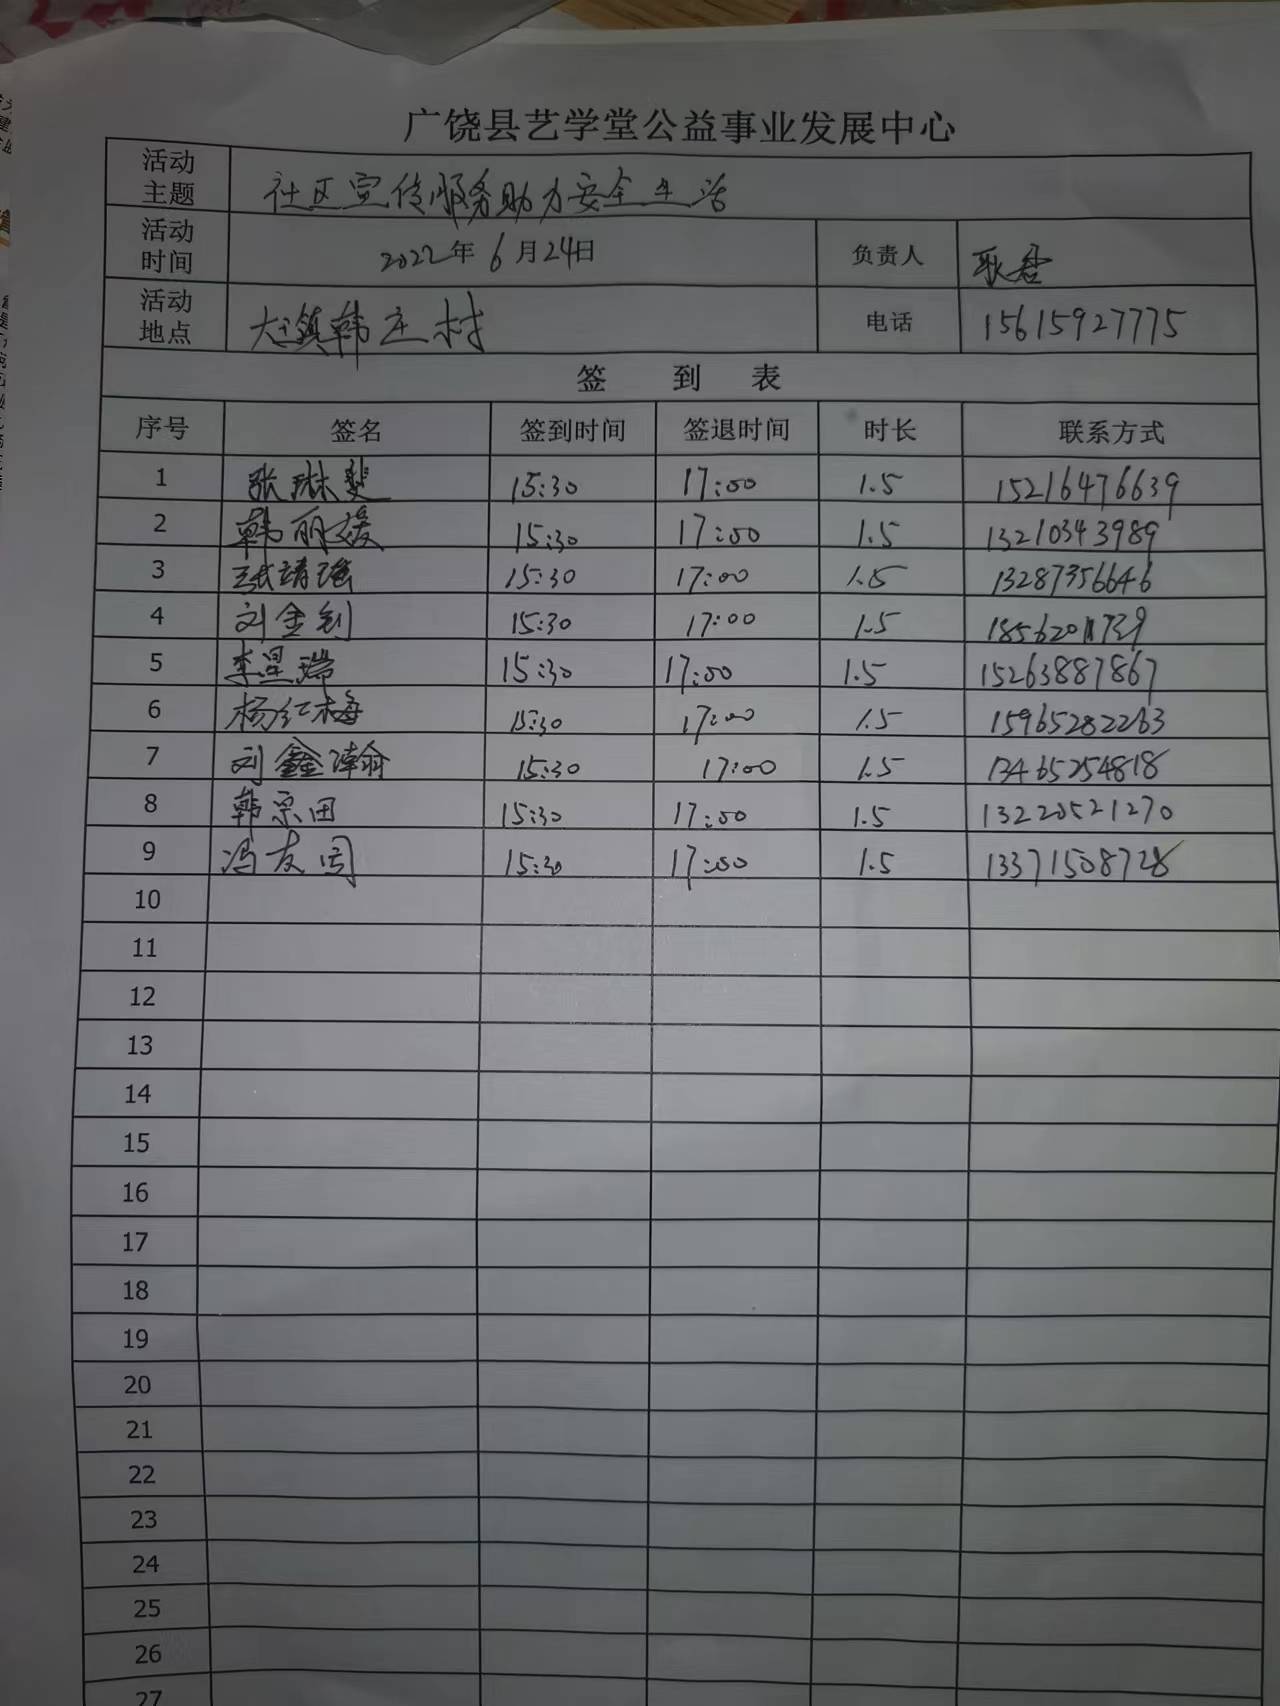 广饶县艺学堂公益事业发展中心
活动主题 社区宣传服务助力安全生活
活动时间 2022年6月24日 负责人 耿君
活动地点 大王镇韩庄村 电话 15615927775
签 到 表
序号 签名 签到时间 签退时间 时长 联系方式
1 张琳斐 15:30 17:00 1.5 15216476639
2 韩丽媛 15:30 17:00 1.5 13210343989
3 张靖瑶 15:30 17:00 1.5 13287356646
4 刘金钊 15:30 17:00 1.5
5 李星瑞 15:30 17:00 1.5 15263887867
6 杨红梅 15:30 17:00 1.5 15965282263
7 刘鑫 15:30 17:00 1.5 13465254818
8 韩宗田 15:30 17:00 1.5 13220521270
9 冯友 15:30 17:00 1.5 13371508728
10
11
12
13
14
15
16
17
18
19
20
21
22
23
24
25
26
27